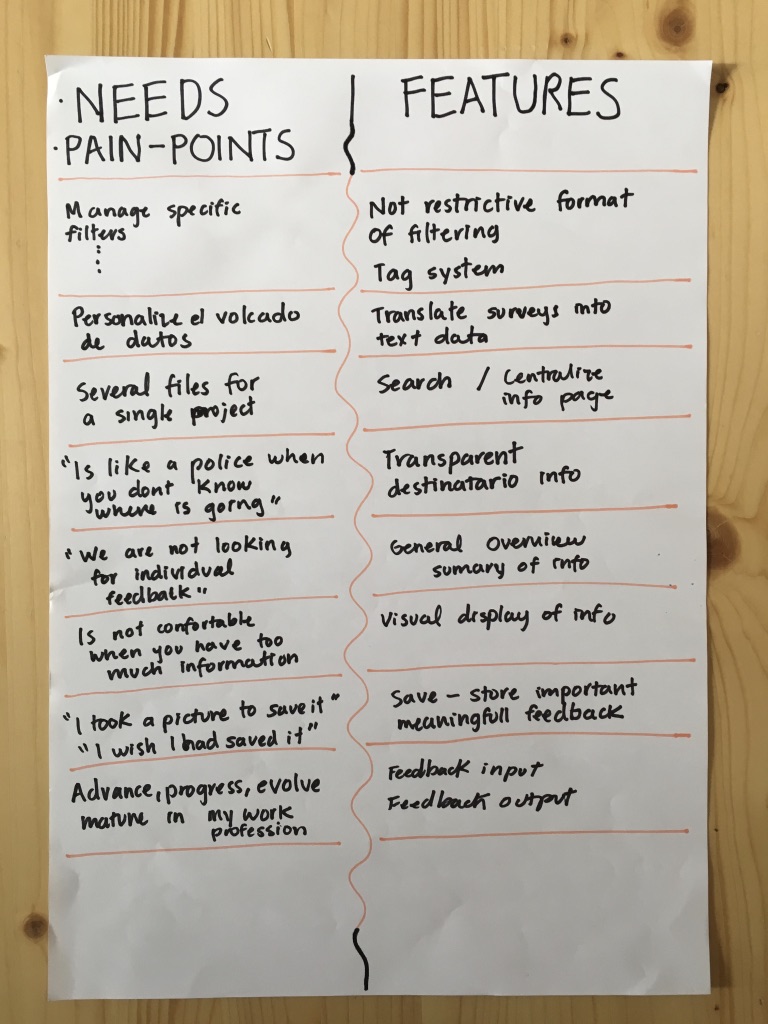 · NEEDS
· PAIN-POINTS
FEATURES
Manage specific
filters
Not restrictive format
of filtering
Tag system
Personalize el volcado
de datos
Translate surveys into
text data
Several files for
a single project
Search / Centralize
info page
"Is like a police when
you dont know
where is going"
Transparent
destinatario info
"We are not looking
for individual
feedback"
General Overview
sumary of info
Is not confortable
when you have too
much information
Visual display of info
"I took a picture to save it"
"I wish I had saved it"
Save – store important
meaningfull feedback
Advance, progress, evolve
mature in my work
profession
Feedback input
Feedback output